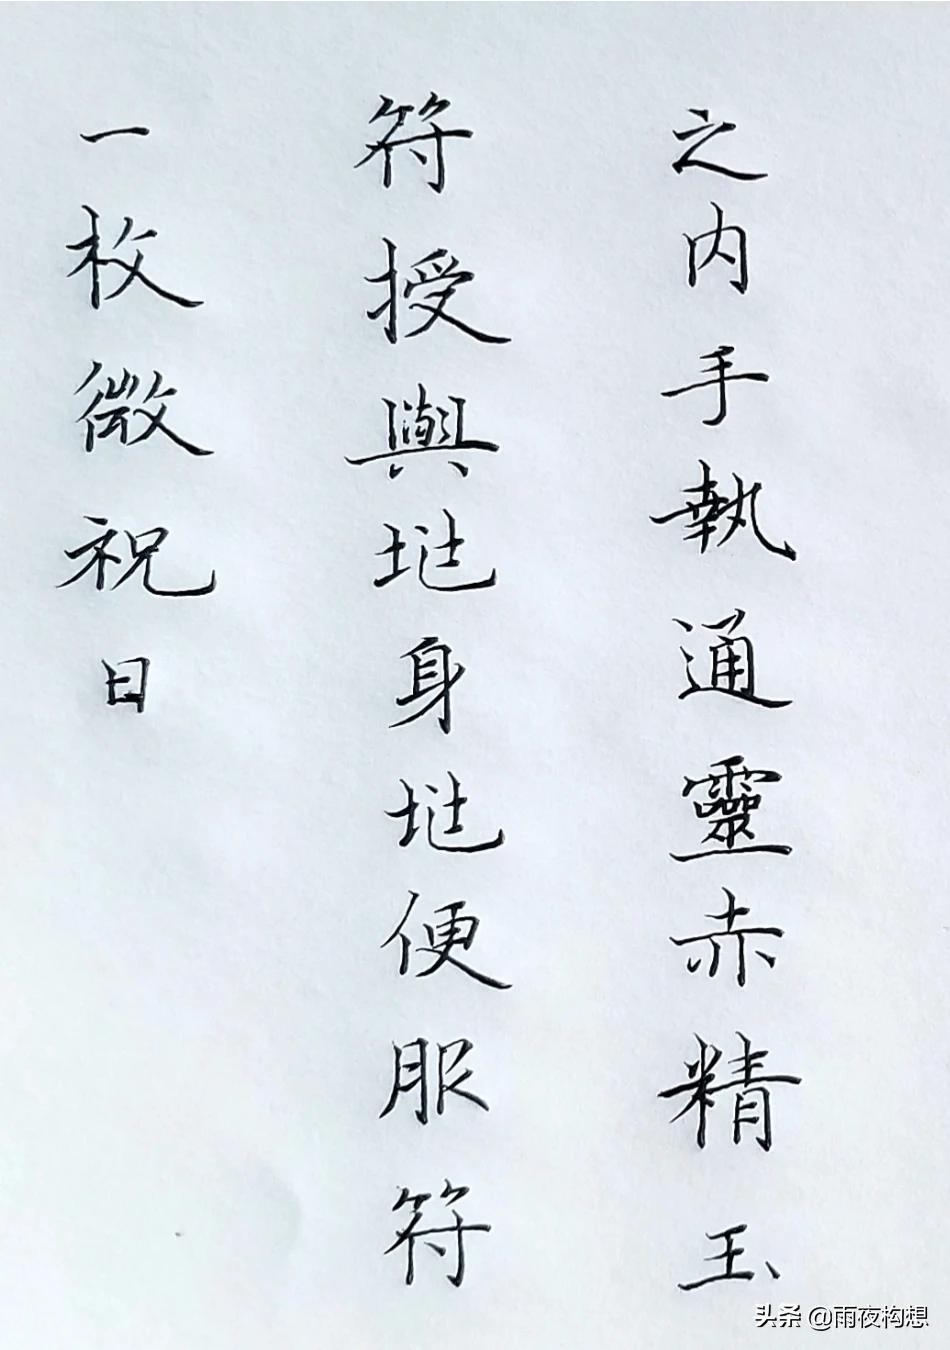 之内手執通靈赤精玉
符授與地身地便服符
一枚微祝曰
头条 @雨夜构想